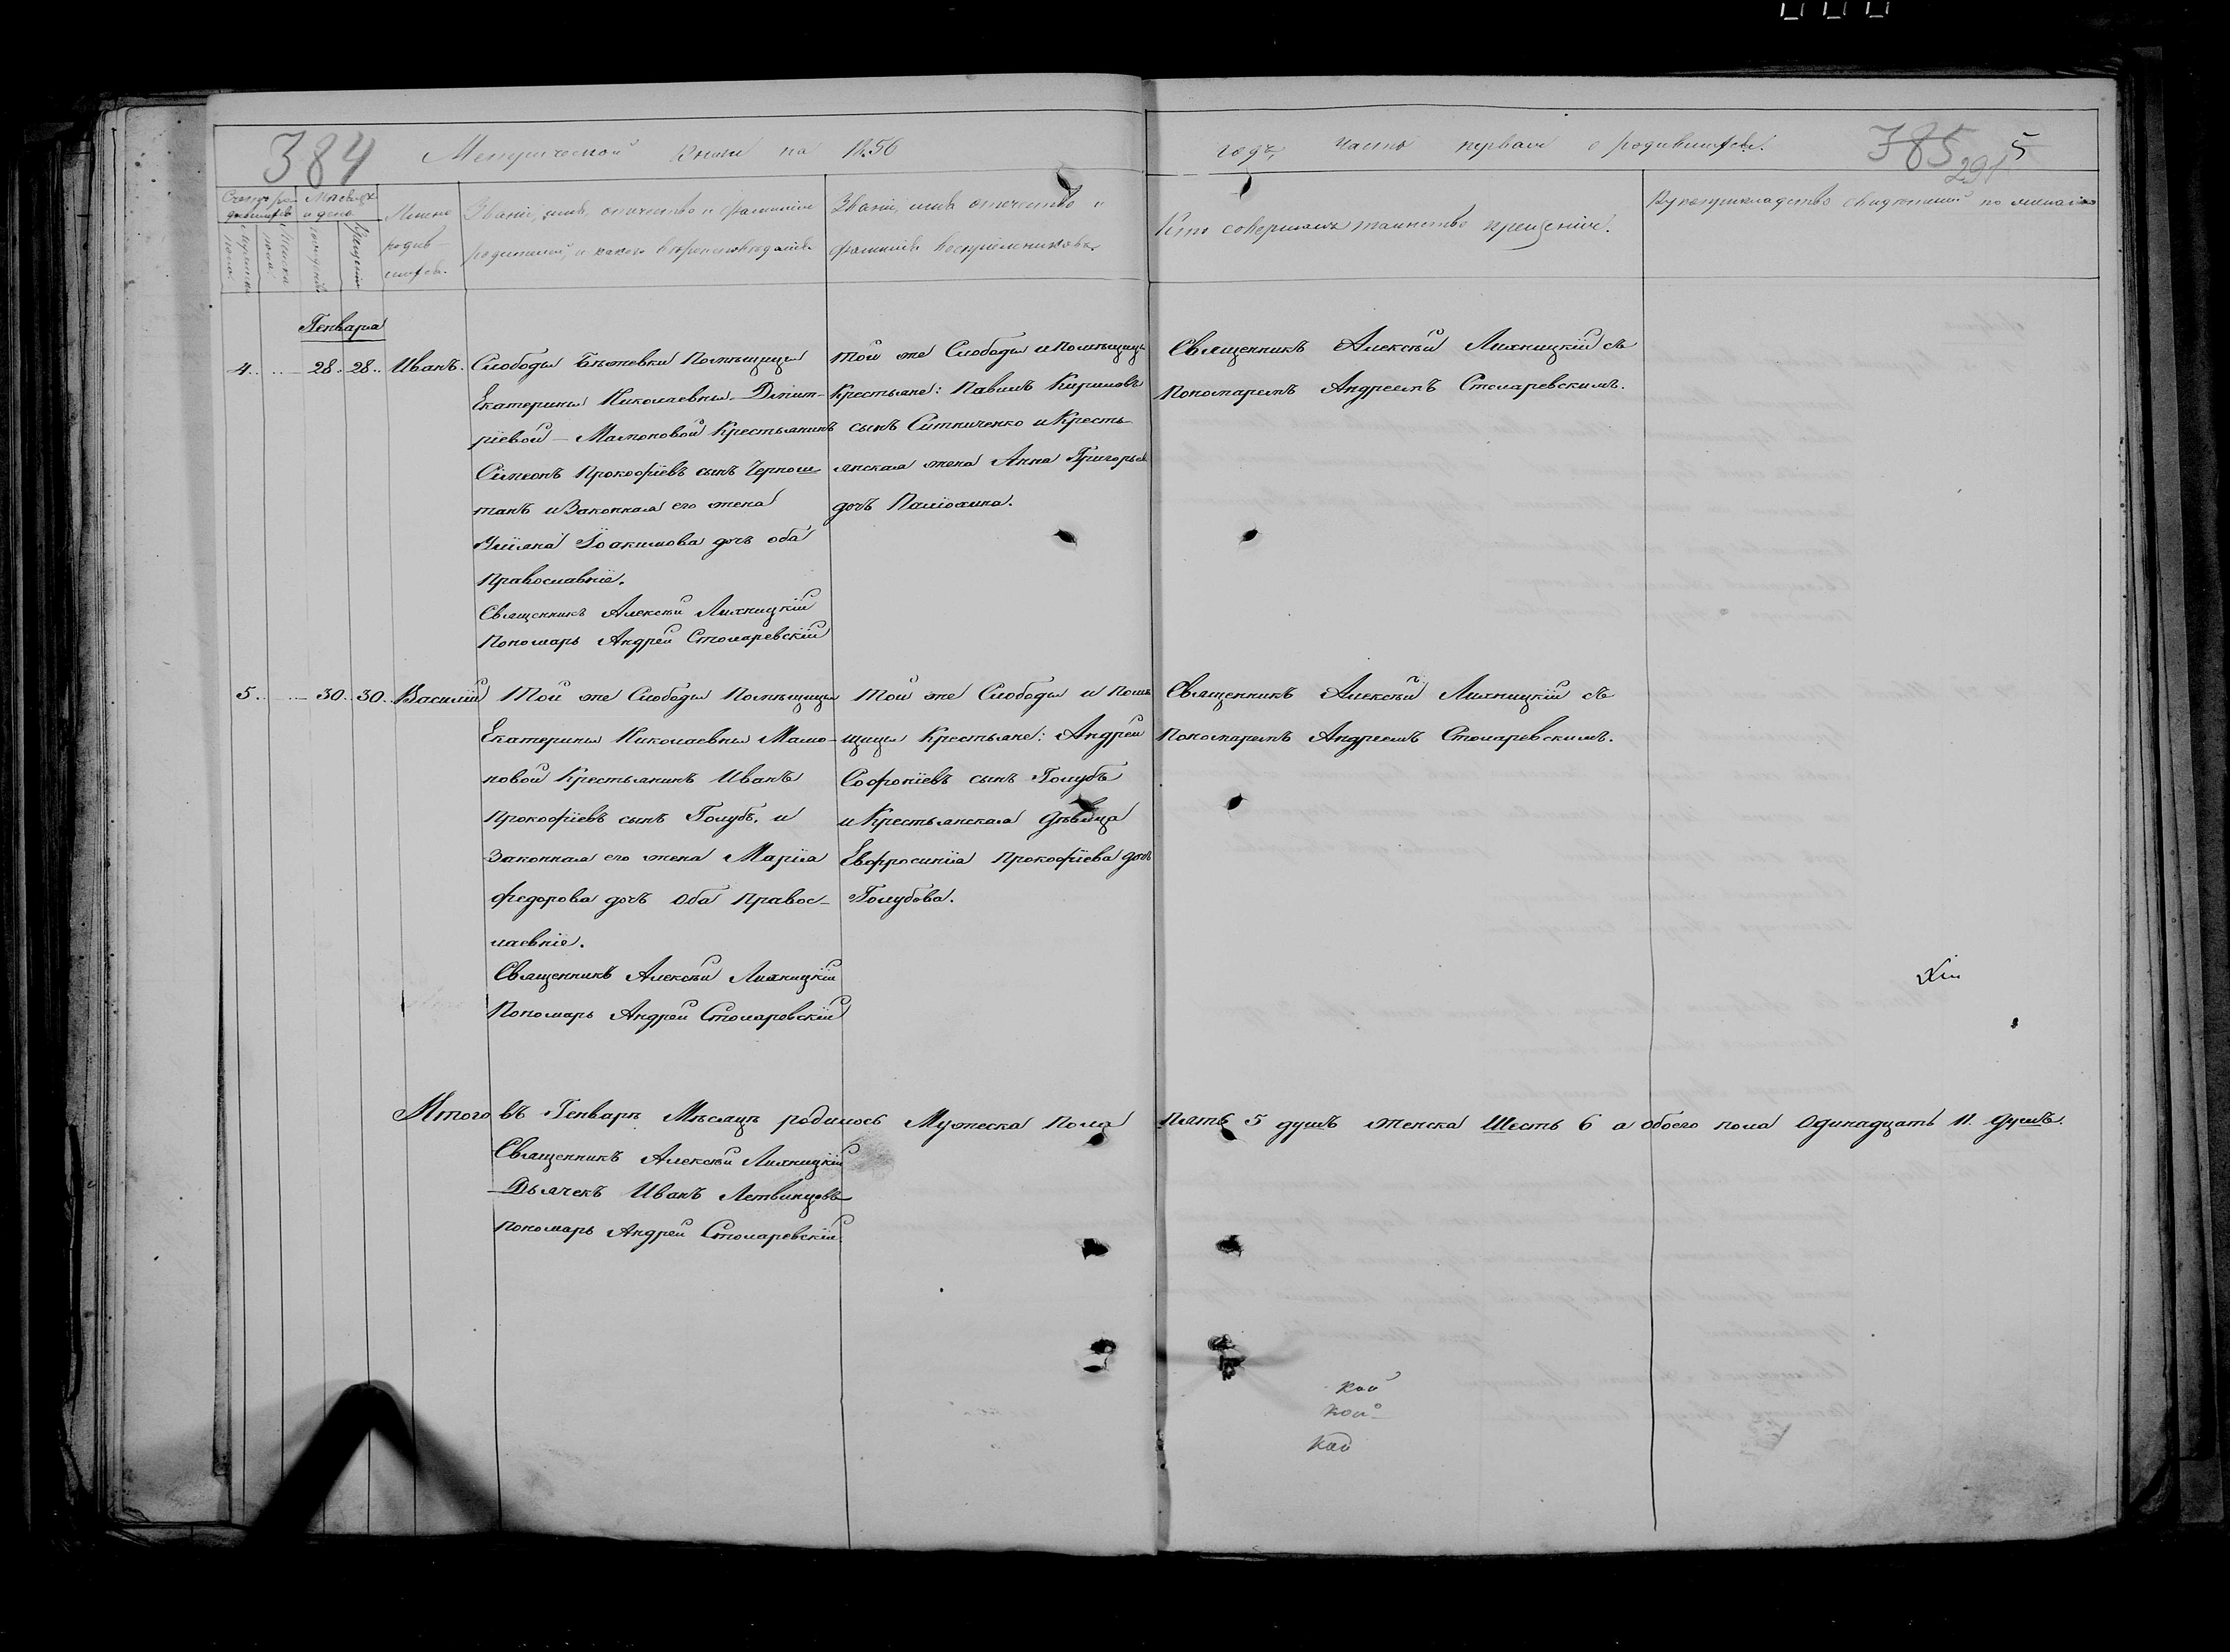 384
Метрической Книги на 1856
годъ, часть первая о родившихся.
385
291
5
Счетъ родившихся
Мѣсяцъ и день
Мужеска пола.
Женска пола.
рожденія
Крещенія
Имена родив-
шихся.
Званіе, имя, отчество и фамилія
родителей, и какого вѣроисповѣданія
Званіе, имя отчество и
фамилія воспріемниковъ
Кто совершалъ таинство крещенія.
Рукоприкладство свидѣтелей по желанію
Генваря
4. 28. 28. Иванъ.
Слободы Бѣжевки Помѣщицы
Екатерины Николаевны Димит-
ріевой-Мамоновой Крестьянинъ
Симеонъ Прокофіевъ сынъ Чернош-
танъ и Законная его жена
Уліяна Іоакимова дочь оба
Православніе.
Священникъ Алексѣй Лихницкій
Пономарь Андрей Столаревскій
Той же Слободы и Помѣщицы
Крестьяне: Павилъ Кириловъ
сынъ Ситниченко и Кресть-
янская жена Анна Григорьева
дочь
Священникъ Алексѣй Лихницкій съ
Пономаремъ Андреемъ Столаревскимъ.
5. 30. 30. Василій
Той же Слободы Помѣщицы
Екатерины Николаевны Мамо-
новой Крестьянинъ Иванъ
Прокофіевъ сынъ Голубъ, и
Законная его жена Марія
Федорова дочь Оба Правос-
лавніе.
Священникъ Алексѣй Лихницкій
Пономарь Андрей Столаревскій
Той же Слободы и Помѣ-
щицы Крестьяне: Андрей
Софроніевъ сынъ Голубъ
и Крестьянская дѣвица
Евфросинія Прокофіева дочь
Голубова.
Священникъ Алексѣй Лихницкій съ
Пономаремъ Андреемъ Столаревскимъ.
Итого въ Генварѣ Мѣсяцѣ родилось Мужеска Пола Пять 5 душъ женска Шесть 6 а обоего пола Одинадцать 11. душъ.
Священникъ Алексѣй Лихницкій
Дьячекъ Иванъ Летвинцовъ
Пономарь Андрей Столаревскій
кой
кой
кой